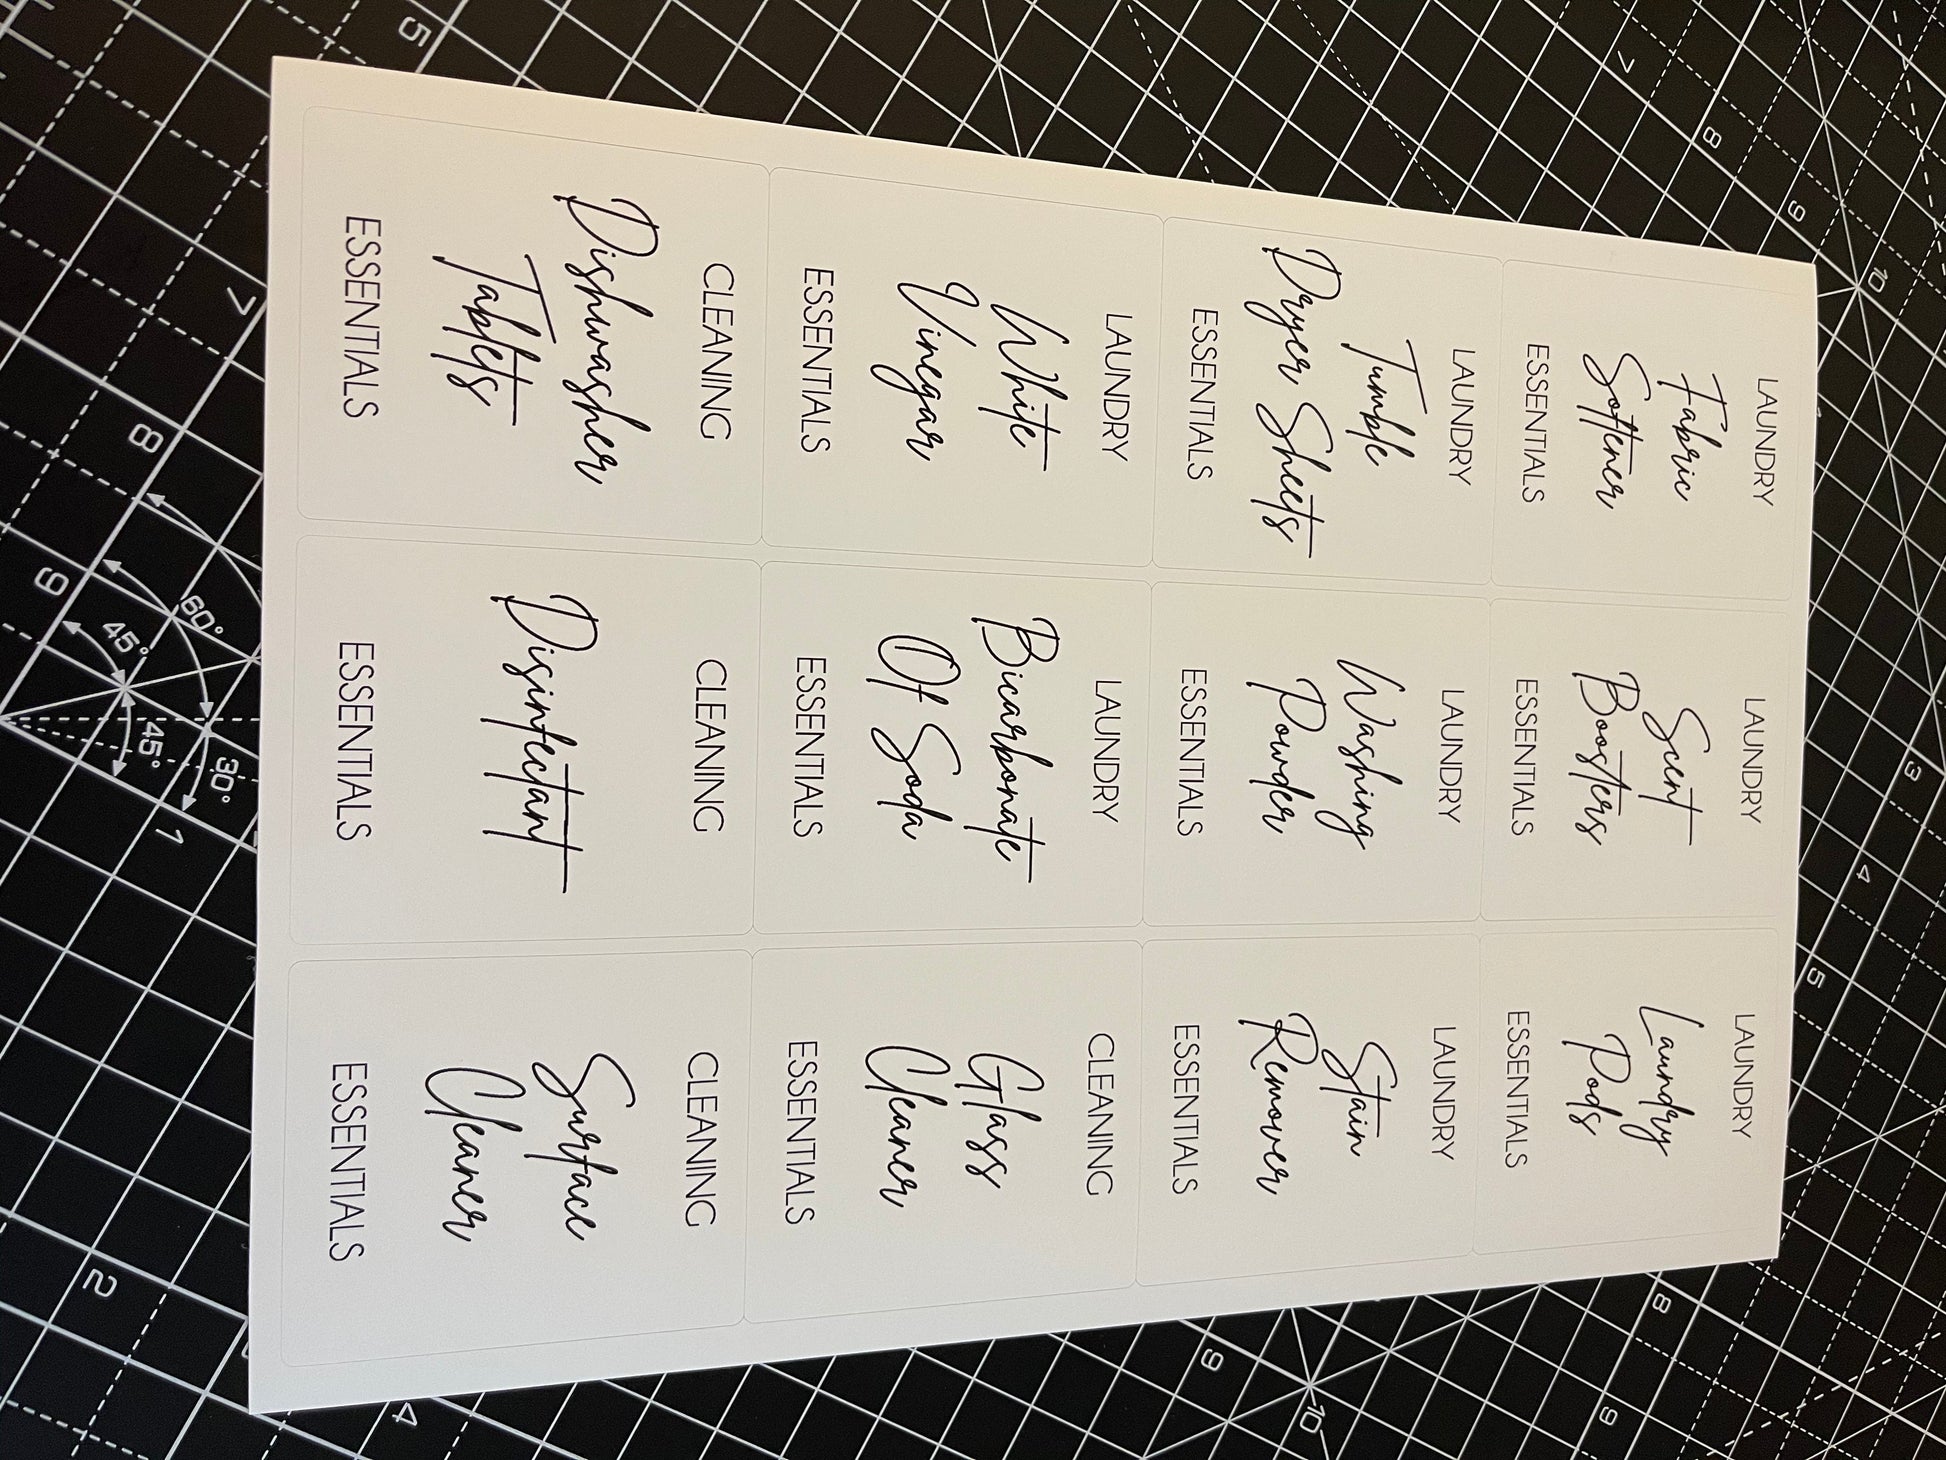 LAUNDRY
Fabric
Softener
ESSENTIALS
LAUNDRY
Scent
Boosters
ESSENTIALS
LAUNDRY
Laundry
Pods
ESSENTIALS
LAUNDRY
Tumble
Dryer Sheets
ESSENTIALS
LAUNDRY
Washing
Powder
ESSENTIALS
LAUNDRY
Stain
Remover
ESSENTIALS
LAUNDRY
White
Vinegar
ESSENTIALS
LAUNDRY
Bicarbonate
Of Soda
ESSENTIALS
CLEANING
Glass
Cleaner
ESSENTIALS
CLEANING
Dishwasher
Tablets
ESSENTIALS
CLEANING
Disinfectant
ESSENTIALS
CLEANING
Surface
Cleaner
ESSENTIALS
5
7
8
9
10
7
8
9
60°
45°
45°
30°
1
2
3
4
5
4
8
9
9
10